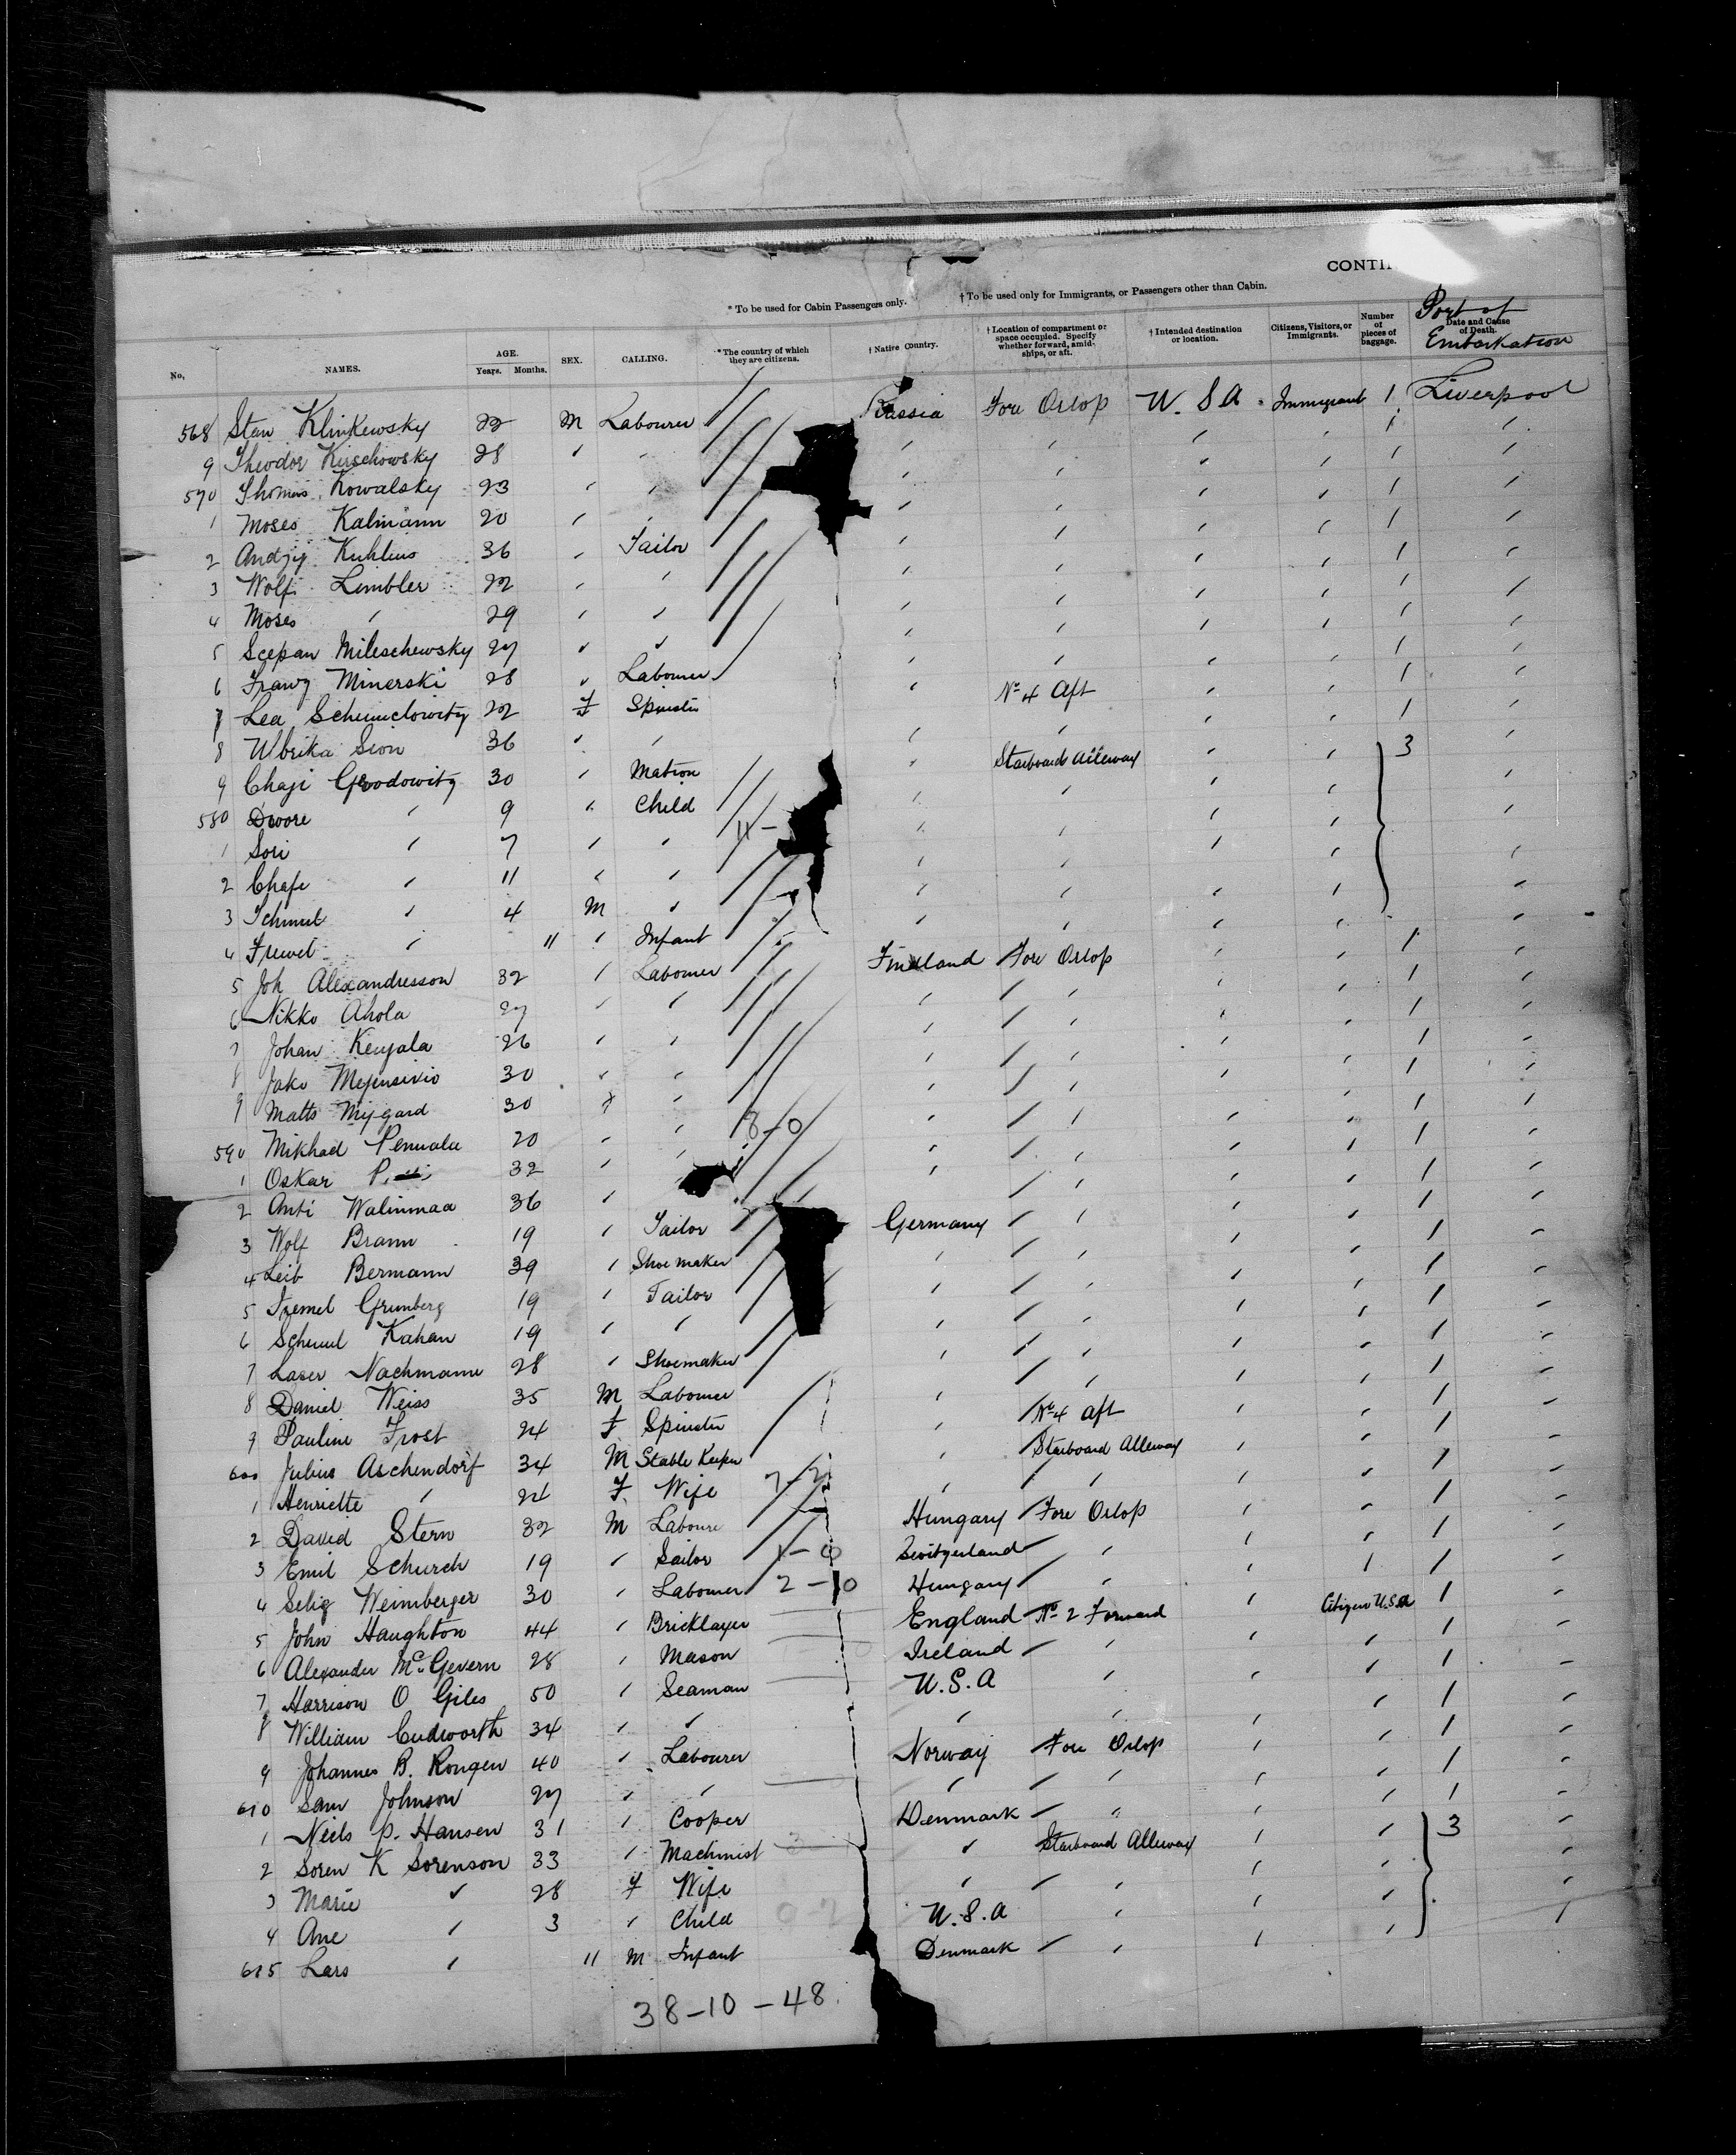 CONTI
* To be used for Cabin Passengers only. † To be used only for Immigrants, or Passengers other than Cabin.
No. NAMES. AGE. Years. Months. SEX. CALLING. * The country of which they are citizens. † Native Country. † Location of compartment or space occupied. Specify whether forward, amidships, or aft. † Intended destination or location. Citizens, Visitors, or Immigrants. Number of pieces of baggage. Date and Cause of Death. Port of Embarkation
568 Stan Klinkewsky 22 M Labourer Russia Fore Orlop U.S.A Immigrant 1 Liverpool
9 Theodor Kuschowsky 28 " " " " " " 1 "
570 Thomas Kowalsky 23 " " " " " " 1 "
1 Moses Kalmann 20 " " " " " " 1 "
2 Kuhlius 36 " Tailor " " " " 1 "
3 Wolf Limbler 22 " " " " " " 1 "
4 Moses " 29 " " " " " " 1 "
5 Scepan Mileschewsky 27 " " " " " " 1 "
6 Franz Minerski 28 " Labourer " " " " 1 "
7 Lea 22 F Spinster " No 4 Aft " " 1 "
8 Ulrika Sion 36 " " " " " " 1 "
9 Chaje Grodowitz 30 " Matron " Starboard Alleway " " 3 "
580 Dwore " 9 " Child " " " " "
1 Sori " 7 " " " " " " "
2 Chafe " 11 " " " " " " "
3 Schmul " 4 M " " " " " "
4 " 11 " Infant " " " " "
5 Joh Alexandresson 32 " Labourer Finland Fore Orlop " " 1 "
6 Nikko Ahola 27 " " " " " " 1 "
7 Johan Kenjala 26 " " " " " " 1 "
8 Jako 30 " " " " " " 1 "
9 Matts Mygard 30 " " " " " " 1 "
8-0
590 Mikhael Penuala 20 " " " " " " 1 "
1 Oskar 32 " " " " " 1 "
2 Anti Walinmaa 36 " " " " " " 1 "
3 Wolf Brann 19 " Tailor Germany " " " 1 "
4 Leib Bermann 39 " Shoemaker " " " " 1 "
5 Grunberg 19 " Tailor " " " " 1 "
6 Schmul Kahan 19 " " " " " " 1 "
7 Laser Nachmann 28 " Shoemaker " " " " 1 "
8 Daniel Weiss 35 M Labourer " " " " 1 "
9 Pauline Frost 24 F Spinster " No 4 aft " " 1 "
600 Julius Aschendorf 34 M Stable Keeper " Starboard Alleway " " 1 "
1 Henriette " 24 F Wife 7-2 " " " " 1 "
2 David Stern 32 M Labourer Hungary Fore Orlop " " 1 "
3 Emil Schurch 19 " Sailor 1-0 Switzerland " " " 1 "
4 Selig Weinberger 30 " Labourer 2-10 Hungary " " " 1 "
5 John Haughton 44 " Bricklayer England No 2 Forward " Citizen U.S.A 1 "
6 Alexander McGevern 28 " Mason Ireland " " " 1 "
7 Harrison O Giles 50 " Seaman U.S.A " " " 1 "
8 William Cudworth 34 " " " " " " 1 "
9 Johannes B. Rongen 40 " Labourer Norway Fore Orlop " " 1 "
610 Sam Johnson 27 " " " " " " 1 "
1 Niels P. Hansen 31 " Cooper Denmark " " " 1 "
2 Soren K Sorenson 33 " Machinist 3 " Starboard Alleway " " 3 "
3 Marie " 28 F Wife " " " " "
4 Ane " 3 " Child 0-2 U.S.A " " " "
615 Lars " 11 M Infant Denmark " " " "
38-10-48